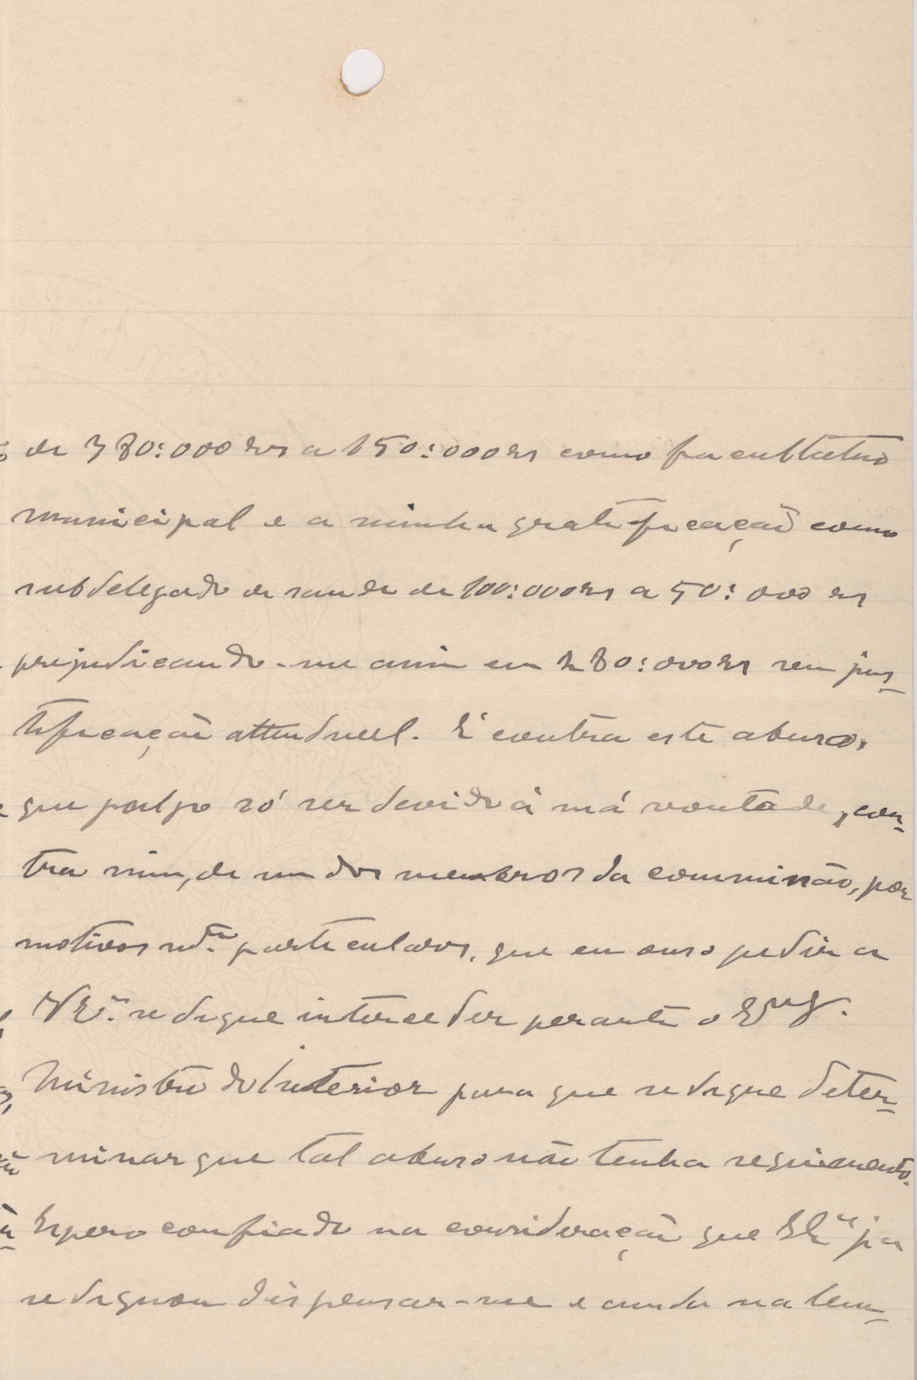 de 380:000 rs a 150:000 rs como facultativo
municipal e a minha gratificação como
subdelegado de saude de 100:000 rs a 50:000 rs
prejudicando-me assim em 280:000 rs sem jus-
tificação attendivel. É contra este abuso,
que julgo só ser devido á má vontade, con-
tra mim, de um dos membros da commissão, por
motivos particulares, que eu ouso pedir a
V Exª. se digne interceder perante o Exmº
Ministro do Interior para que se digne deter-
minar que tal abuso não tenha seguimento.
Espero confiado na consideração que já
se dignou dispensar-me e ainda na lem-